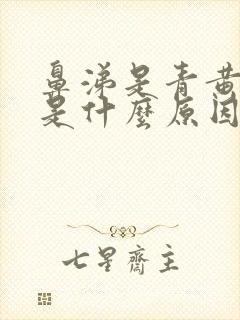 鼻涕是青黄
是什麼原因
七星齋主